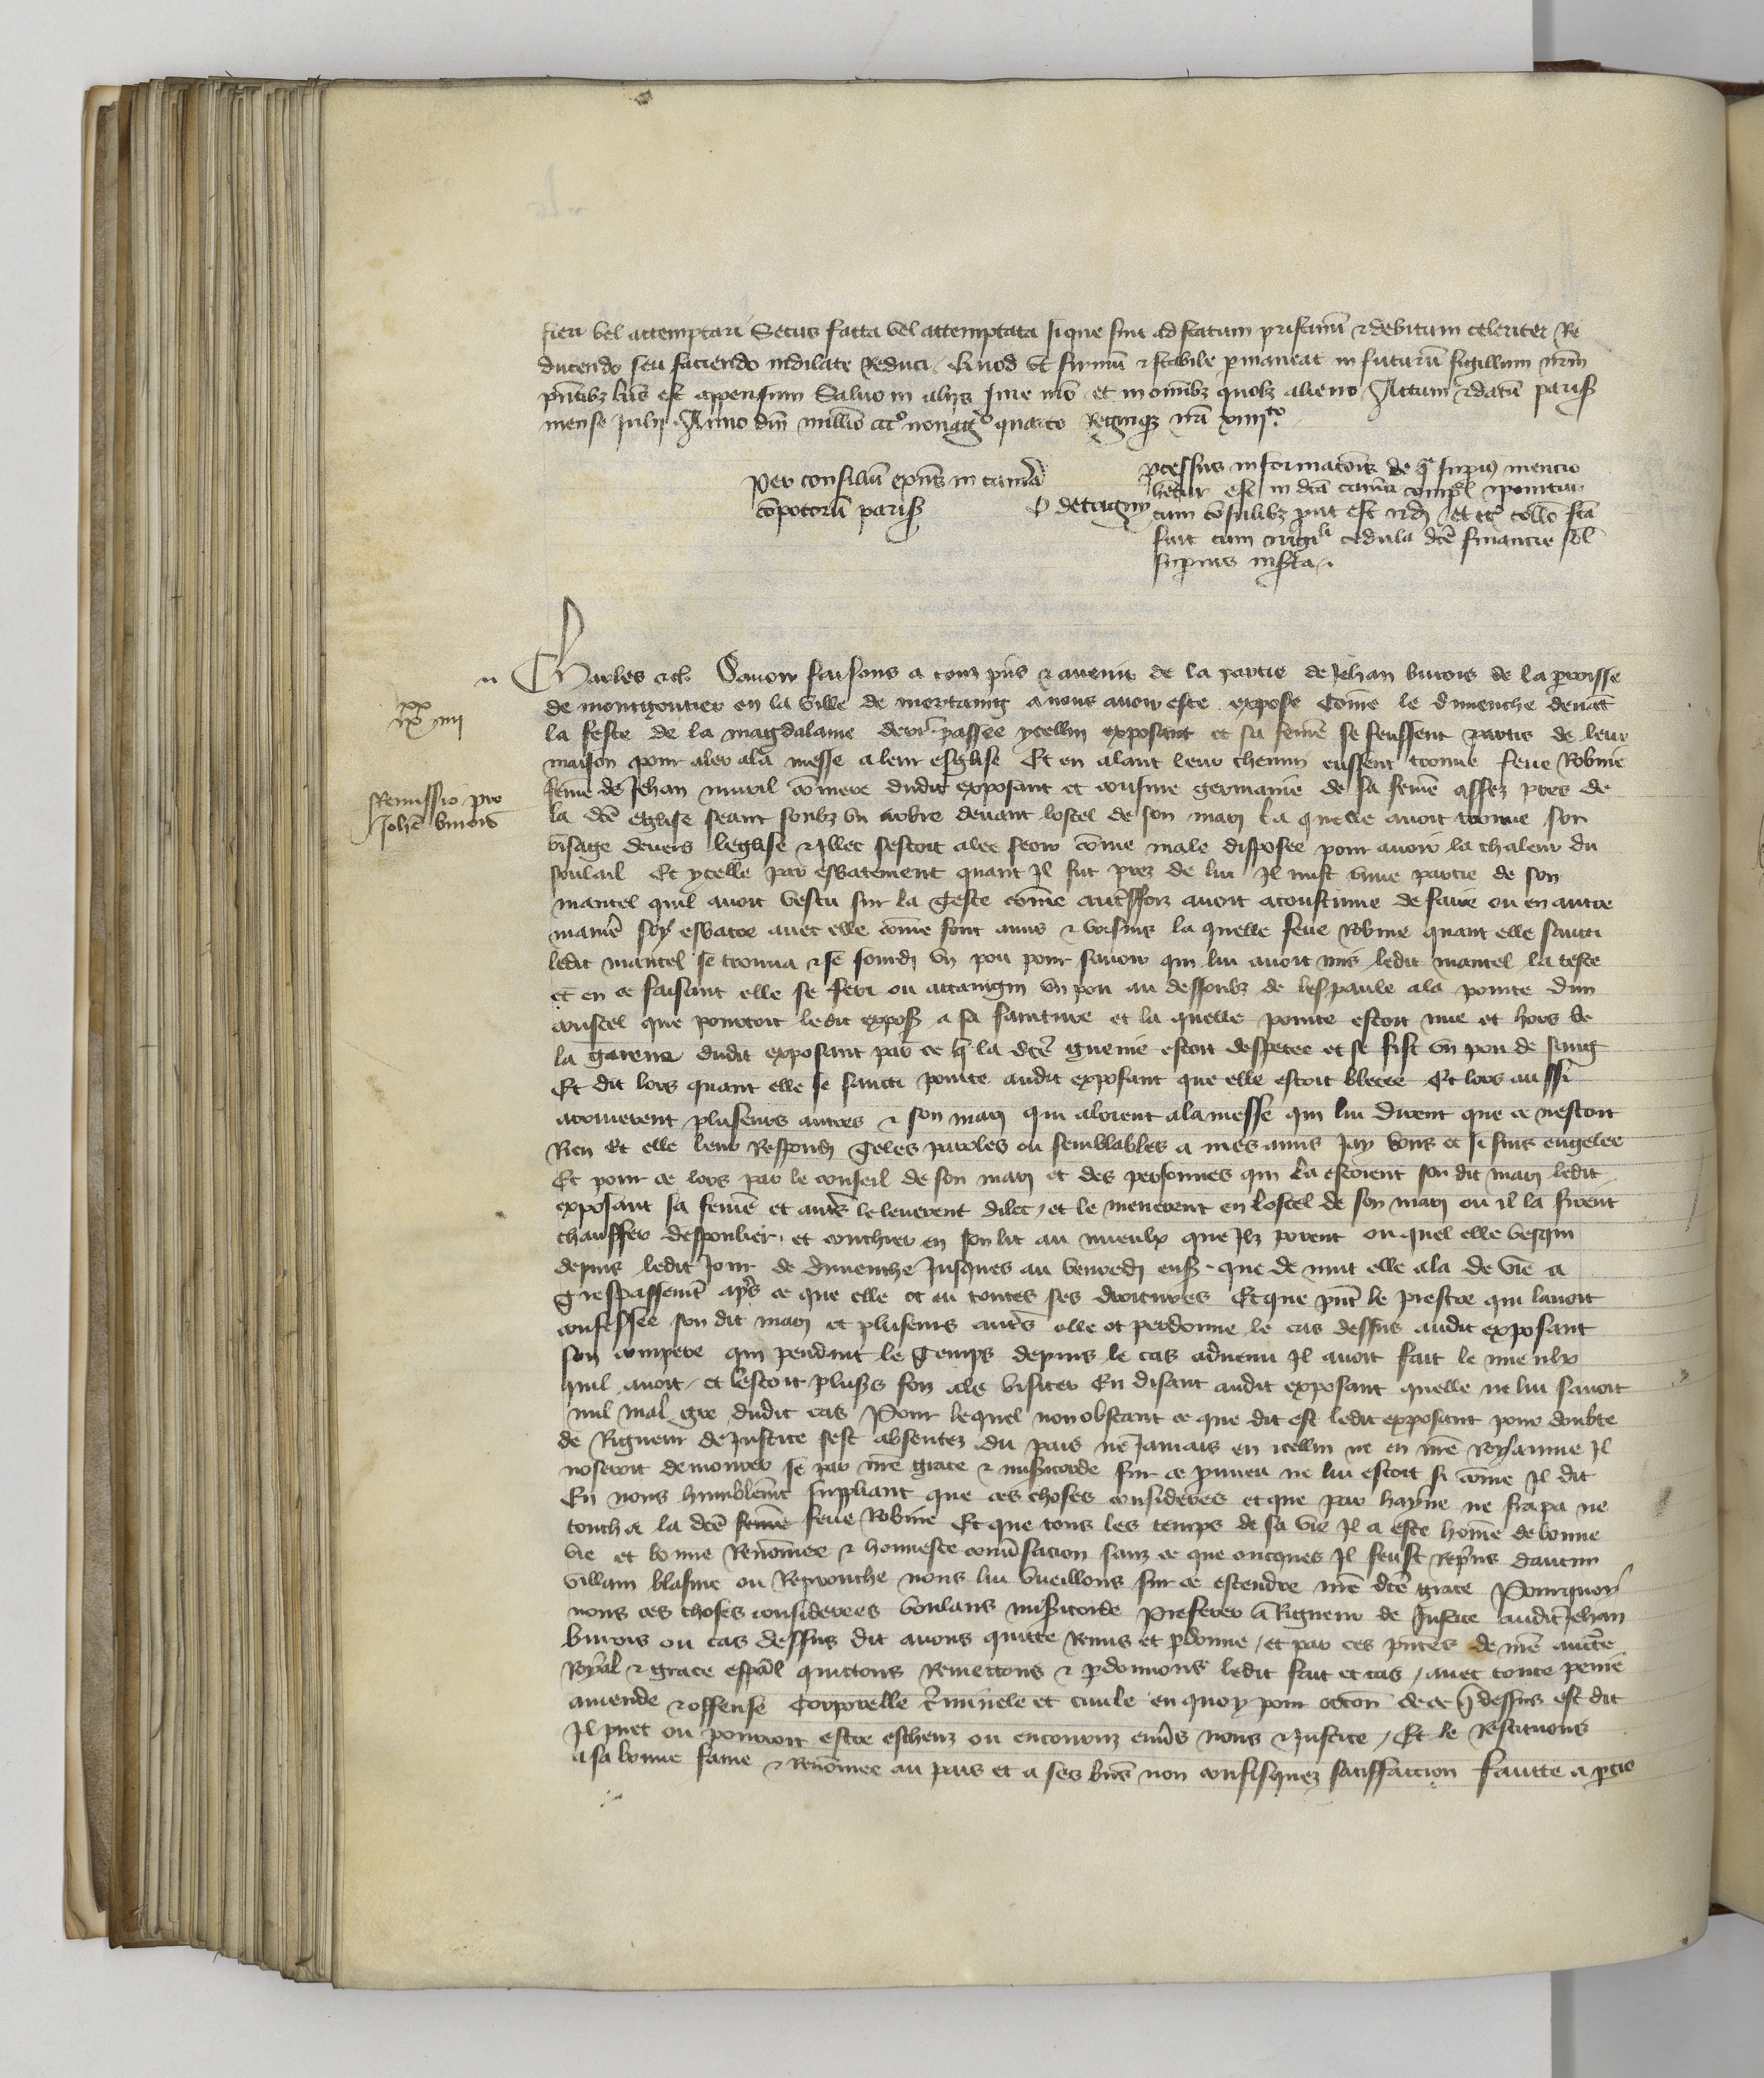 fieri vel attemptari Secus facta vel attemptata si que sint ad statum pristinũ & debitum celeriter Re
ducendo seu faciendo indilate reduci. Quod ut firmũ & stabile pmaneat in futurũ sigillum nrm̃
pñtibz lrĩs est appensum Salvo in aliis Jure nrõ et in omĩbz quolz alieno Actum & datũ parisꝫ
mense Julij Anno dm̃ millĩo ccc° nonagº quarto Regniqꝫ nrĩ xiiiito.
Per consiliũ exñs in camerã
cõpotorũ parisꝫ
D de Cugny
pcessus informatõis de qª supiꝰ mencio
hẽtur est in dcã camerã compõl
cum cõsilibz put est et collõ fcã
fuit cum origili cedula dcẽ financie
supius insẽta.
Charles &c. Savoir faisons a touz pñs & avenir de la partie de Jehan burois de la proisse
de montgoutier en la ville de mortaing a nous avoir este expose Cõme le dimenche devãt
la feste de la magdalaine derrẽ passee ycellui exposant et sa femẽ se feussent partis de leur
maison pour aler ala messe a leur esglise Et en alant leur chemin eussent trouue feue Robine
femẽ de Jehan muril cõmere dudit exposant et cousine germaine de sa femẽ assez pres de
la dcẽ eglise seant soubz un arbre devant lostel de son mary la quelle avoit tourne son
visage devers leglise & illec sestoit alee seoir cõme male disposee pour avoir la chaleur du
soulail Et ycelle par esbatement quant Il fut prez de lui Il mist vune partie de son
mantel quil avoit vestu sur la teste cõme autreffoiz avoit acoustume de faire ou en autre
maniẽ soy esbatre avec elle cõme font amis & voisins la quelle feue Robine quant elle senti
ledit mantel se tourna & se sourdy un pou pour savoir qui lui avoit mis ledit mantel la teste
et en ce faisant elle se feri ou attaingni un pou au dessoubz de lespaule ala pointe dun
coustel que pourtoit ledit exposꝫ a sa sainture et la quelle pointe estoit nue et hors de
la gaiene dudit exposant par ce q̃ la dcẽ gueine estoit despecee et se fist un pou de sang
Et dit lors quant elle se senti pointe audit exposant que elle estoit blecee Et lors aussi
arriuerent pluseurs autres & son mary qui aloient ala messe qui lui dirent que ce nestoit
Rien Et elle leur Respondy Teles paroles ou semblables a mes amis Jay vous et si suis engelee
Et pour ce lors par le conseil de son mary et des personnes qui la estoient son dit mary ledit
exposant sa femẽ et autrẽs le leverent dilec / et le menerent en lostel de son mary ou il la firent
chauffer despoulier et couchier en son lit au mieulx que Ilz porent ou quel elle vesqui
depuis ledit Jour de dimenche Jusques au venredy ensꝫ que de nuit elle ala de vie a
Trespassemẽt apres ce que elle ot eu toutes ses droitures Et que pñt le prestre qui lavoit
confessee son dit mary et pluseurs autrẽs elle ot perdonne le cas dessus audit exposant
son compere qui pendant le Temps depuis le cas advenu Il avoit fait le mieulx
quil avoit et lestoit plusꝫs foiz ale visiter En disant audit exposant quelle ne lui savoit
nul mal gre dudit cas Pour lequel non obstant ce que dit est ledit exposant pour doubte
de Rigueur de Justice sest absentez du pais ne Jamais en icellui ne en nrẽ Royaume Il
noseroit demourer se par nrẽ grace & misẽricorde sur ce pourveu ne lui estoit si cõme Il dit
En nous humblemẽt suppliant que ces choses considerẽes et que par hayne ne frapa ne
toucha la dcẽ femẽ feue Robine Et que tous les temps de sa vie Il a este homẽ de bonne
vie et bonne Renõmee & honneste conṽsacion sanz ce que oncques Il feust repris daucun
villain blasme ou Reprouche nous lui vueillons sur ce estendre nrẽ dcẽ grace Pourquoy
nous ces choses considerees voulans misericorde preferer a Rigueur de Justice audit Jehan
burois ou cas dessus dit avons quitte remis et pdonne / et par ces pñtes de nrẽ auctẽ
Royal & grace espãl quittons remettons & pdonnons ledit fait et cas / avec toute peine
amende & offense Corporelle crĩminele et civile en quoy pour occõn de ce q̃ dessus est dit
Il puet ou pourroit estre escheuz ou encouruz enṽs nous & Justice / Et le Restituons
a sa bonne fame & Renõmee au pais et a ses biẽs non confisquez satisfaccion faitte a ptie
xx
ix iiii
Remissio pro
Johẽ burois